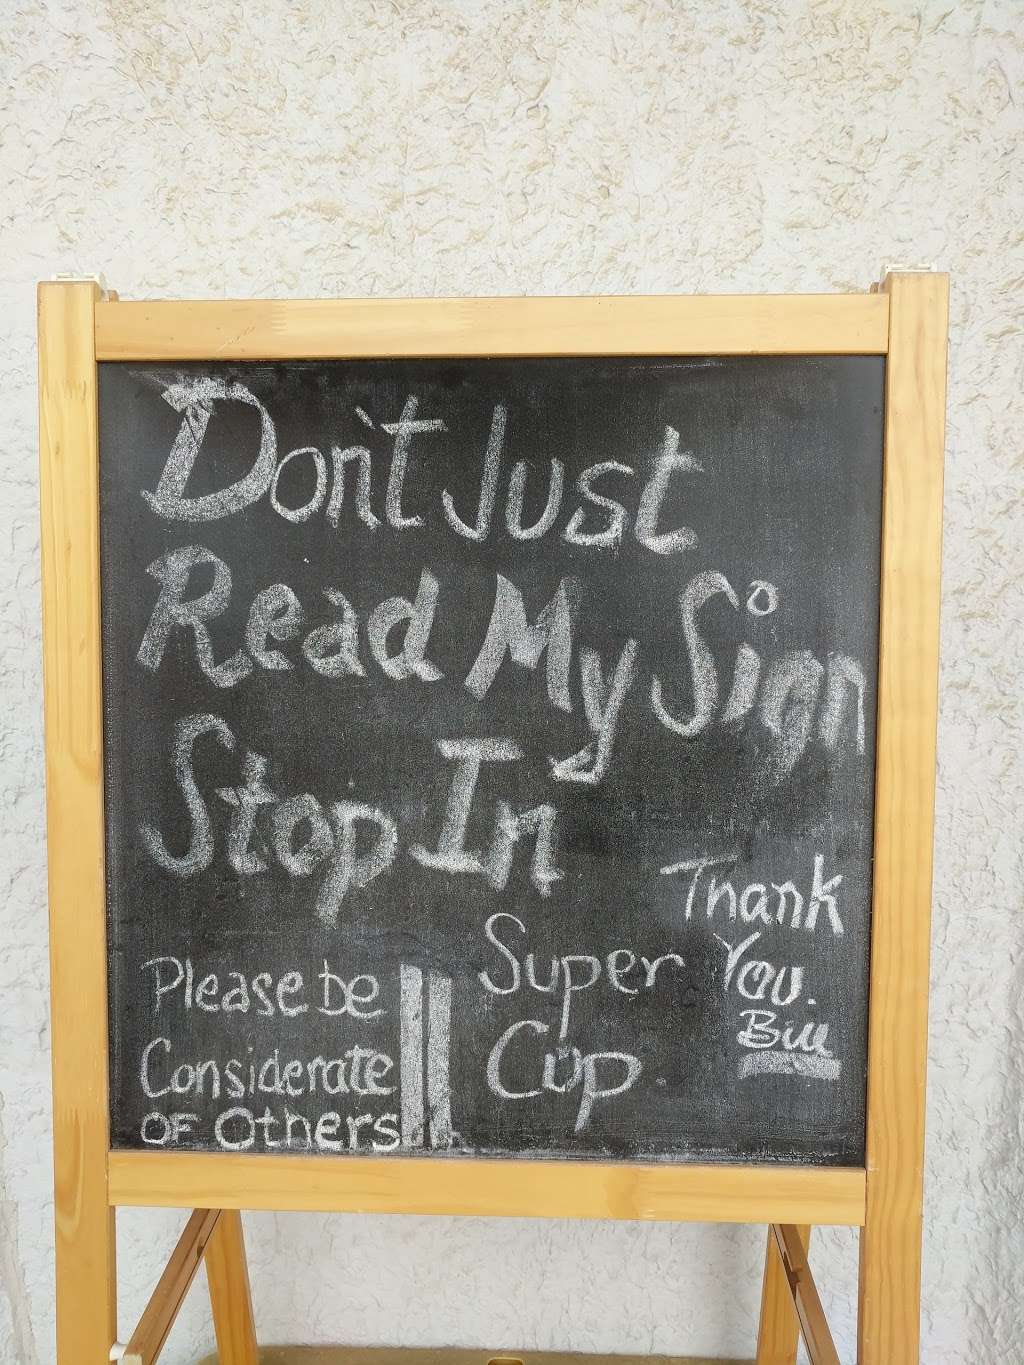 Don't Just
Read My Sign
Stop In
Please be
Considerate
of Others
Super
Cup
Thank
You.
Bill